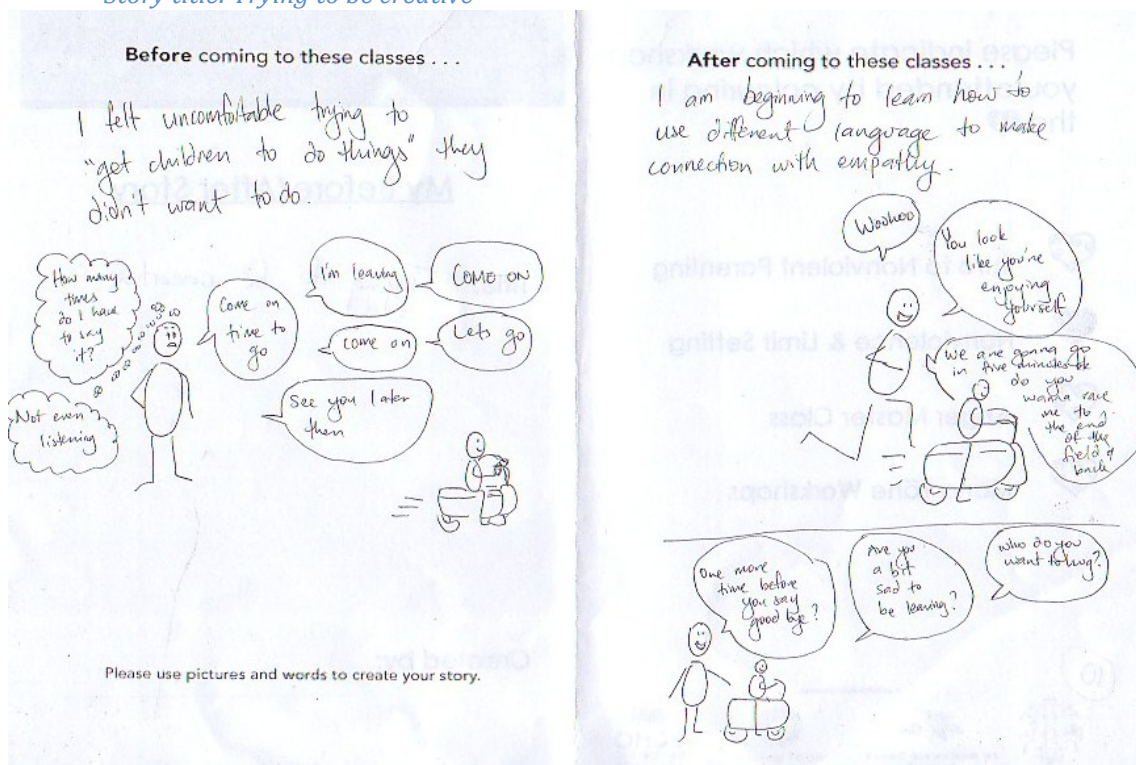 Story title: Trying to be creative
Before coming to these classes . . .
I felt uncomfortable trying to
"get children to do things" they
didn't want to do.
How many
times
do I have
to say
it?
Not even
listening
Come on
time to
go
I'm leaving
COME ON
come on
Lets go
See you later
then
Please use pictures and words to create your story.
After coming to these classes . . .
I am beginning to learn how to
use different language to make
connection with empathy.
Woohoo
You look
like you're
enjoying
yourself
We are gonna go
in five minutes ok
do you
wanna race
me to
the end
of the
field &
back
One more
time before
you say
good bye?
Are you
a bit
sad to
be leaving?
Who do you
want to hug?